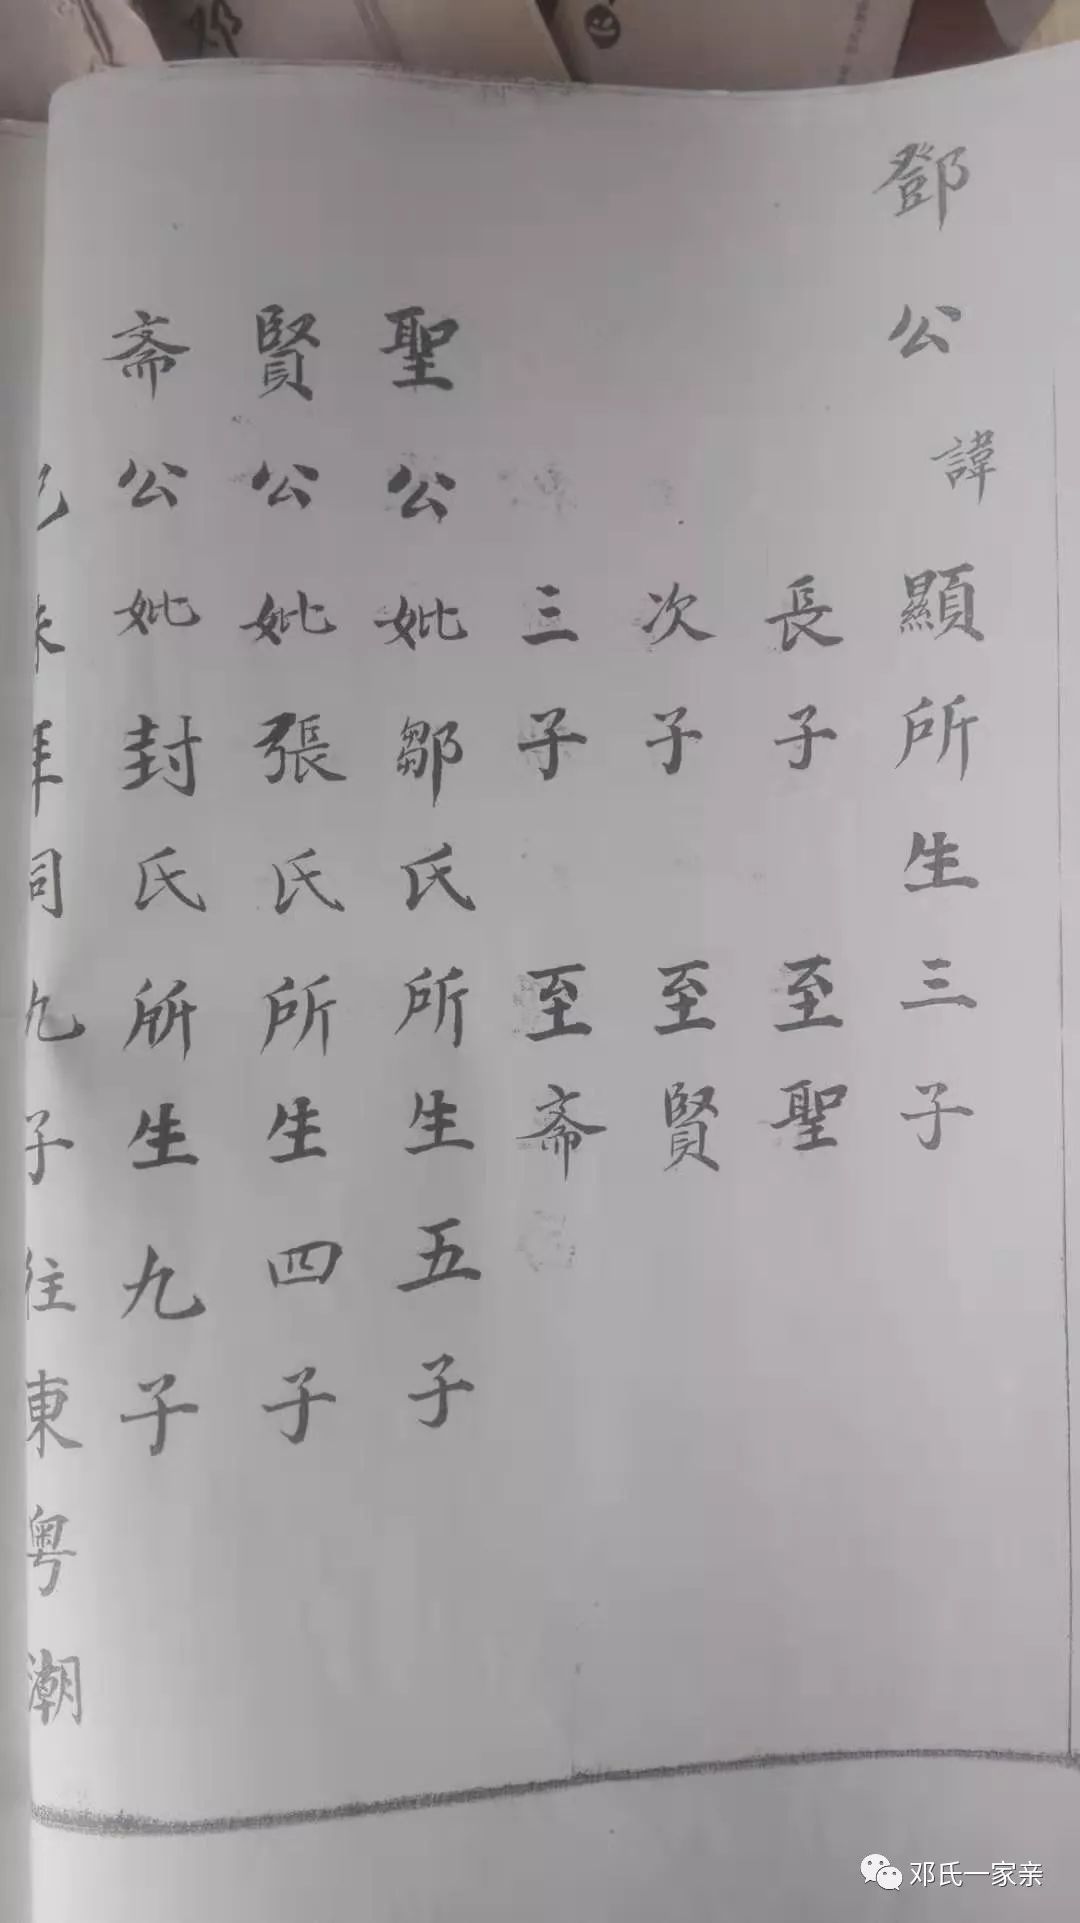 鄧公諱顯所生三子
長子 至聖
次子 至賢
三子 至斎
聖公妣鄒氏所生五子
賢公妣張氏所生四子
斎公妣封氏所生九子
同九子往東粤潮
邓氏一家亲